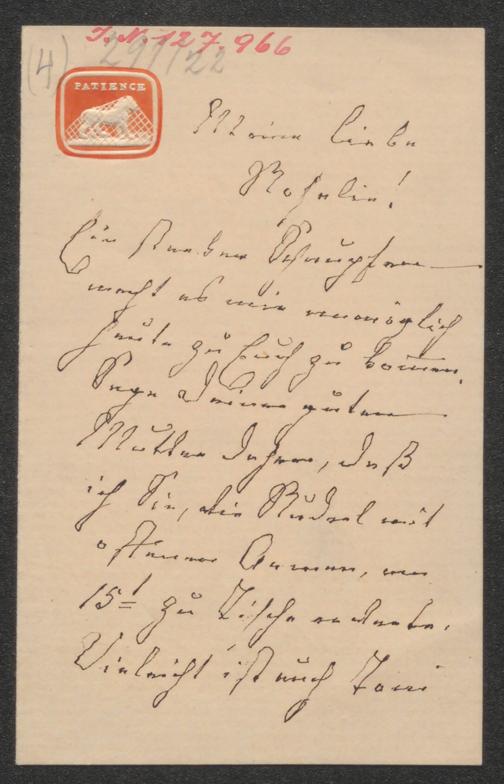 I. N. 127.966
(4) 291/22
PATIENCE
Meine liebe
Rosalie!
Ein starker Schnupfen
macht es mir unmöglich
heute zu Euch zu kommen.
Sage Deiner guten
Mutter daher, daß
ich Sie, die Rudel mit
offenen Armen, am
15t zu Tische erwarte.
Vieleicht ist auch Toni